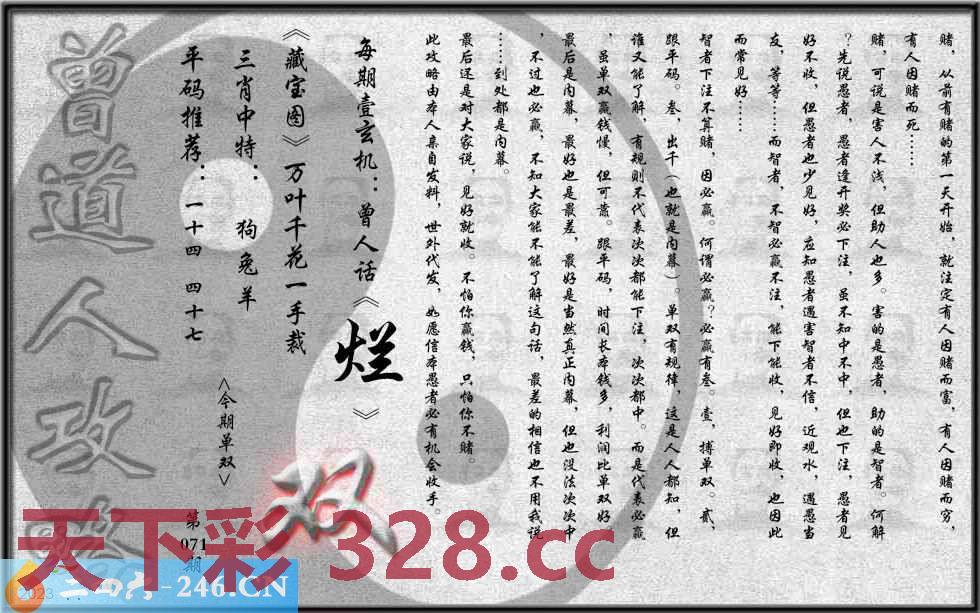 赌，从前有赌的第一天开始，就注定有人因赌而富，有人因赌而穷，
有人因赌而死……
赌，可说是害人不浅，但助人也多。害的是愚者，助的是智者。何解
？先说愚者，愚者逢开奖必下注，虽不知中不中，但也下注，愚者见
好不收，但愚者也少见好，应知愚者遇害智者不信，近观水，遇愚当
友，等等……而智者，不智必赢不注，能下能收，见好即收，也因此
而常见好……
智者下注不算赌，因必赢。何谓必赢？必赢有叁。壹，搏单双。贰，
跟平码。叁，出千（也就是内幕）。单双有规律，这是人人都知，但
谁又能了解，有规则不代表次次都能下注，次次都中。而是代表必赢
，虽单双赢钱慢，但可靠。跟平码，时间长本钱多，利润比单双好。
最后是内幕，最好也是最差，最好是当然真正内幕，但也没法次次中
，不过也必赢，不知大家能不能了解这句话，最差的相信也不用我说
……到处都是内幕。
最后还是对大家说，见好就收。不怕你赢钱，只怕你不赌。
此攻略由本人亲自发料，世外代发，如愿信本愚者必有机会收手。
每期壹玄机：曾人话《烂》
《藏宝图》万叶千花一手裁
三肖中特：狗兔羊
平码推荐：一十四 四十七
<今期单双>
双
第071期
曾道人攻略
天下彩 328.cc
二四六-246.CN
2023